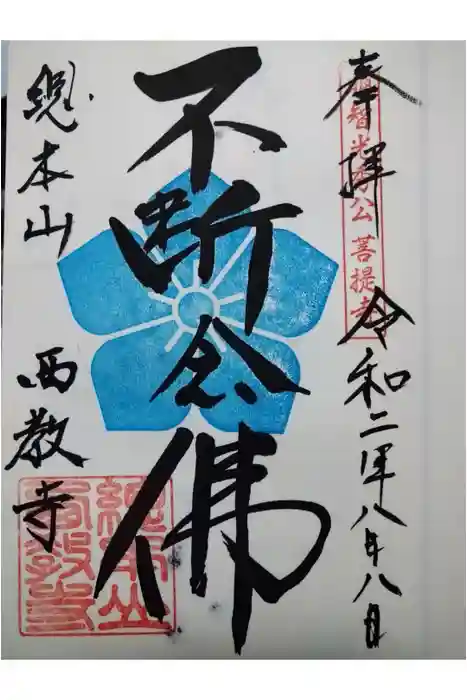 奉拝
明智光秀公菩提寺
令和二年八月八日
不断念佛
總本山
西教寺
總本山
西教寺